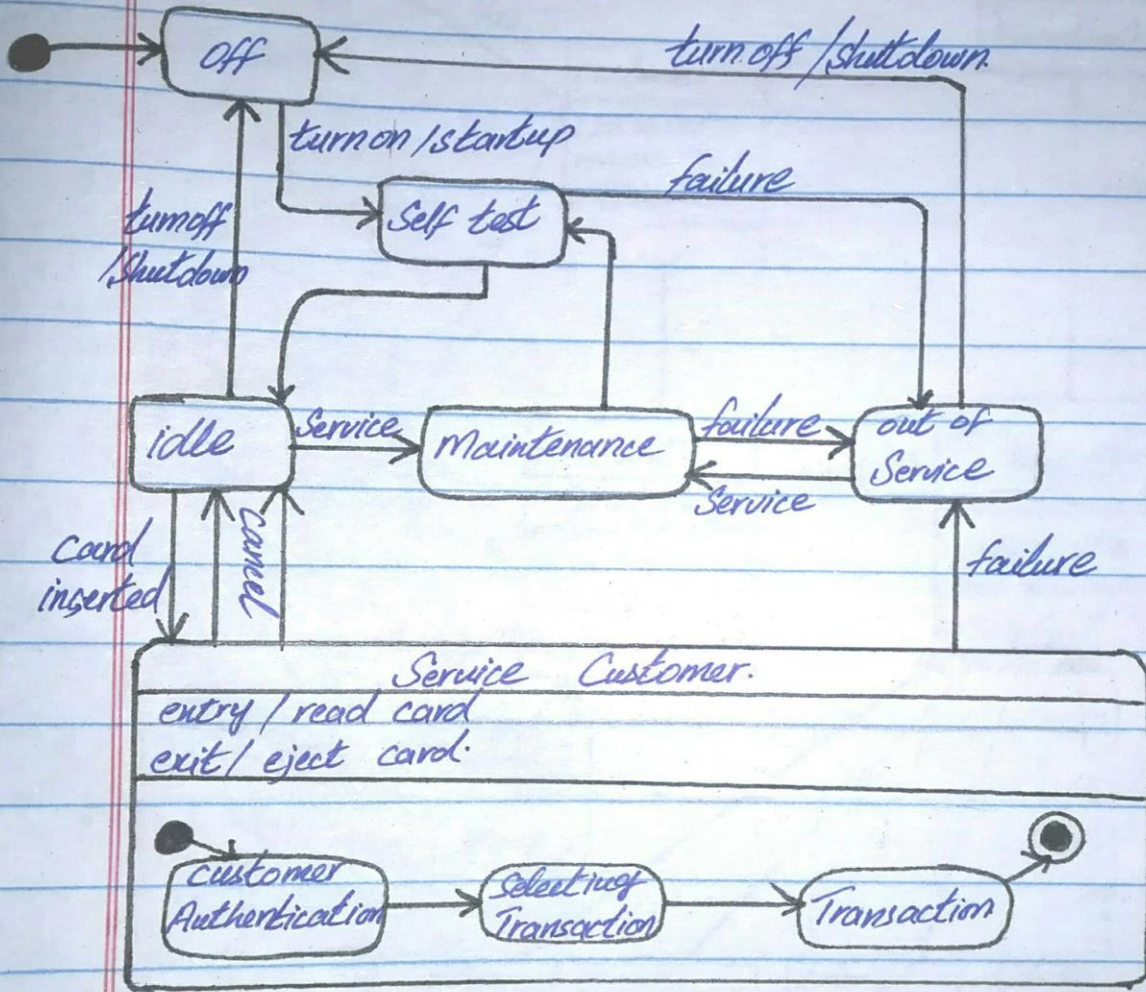 Off
turn off /shutdown.
turn on /startup
failure
Self test
turnoff
/shutdown
idle
Service
Maintenance
failure
Service
out of
Service
Card
inserted
cancel
failure
Service Customer.
entry / read card
exit / eject card.
customer
Authentication
Selecting
Transaction
Transaction